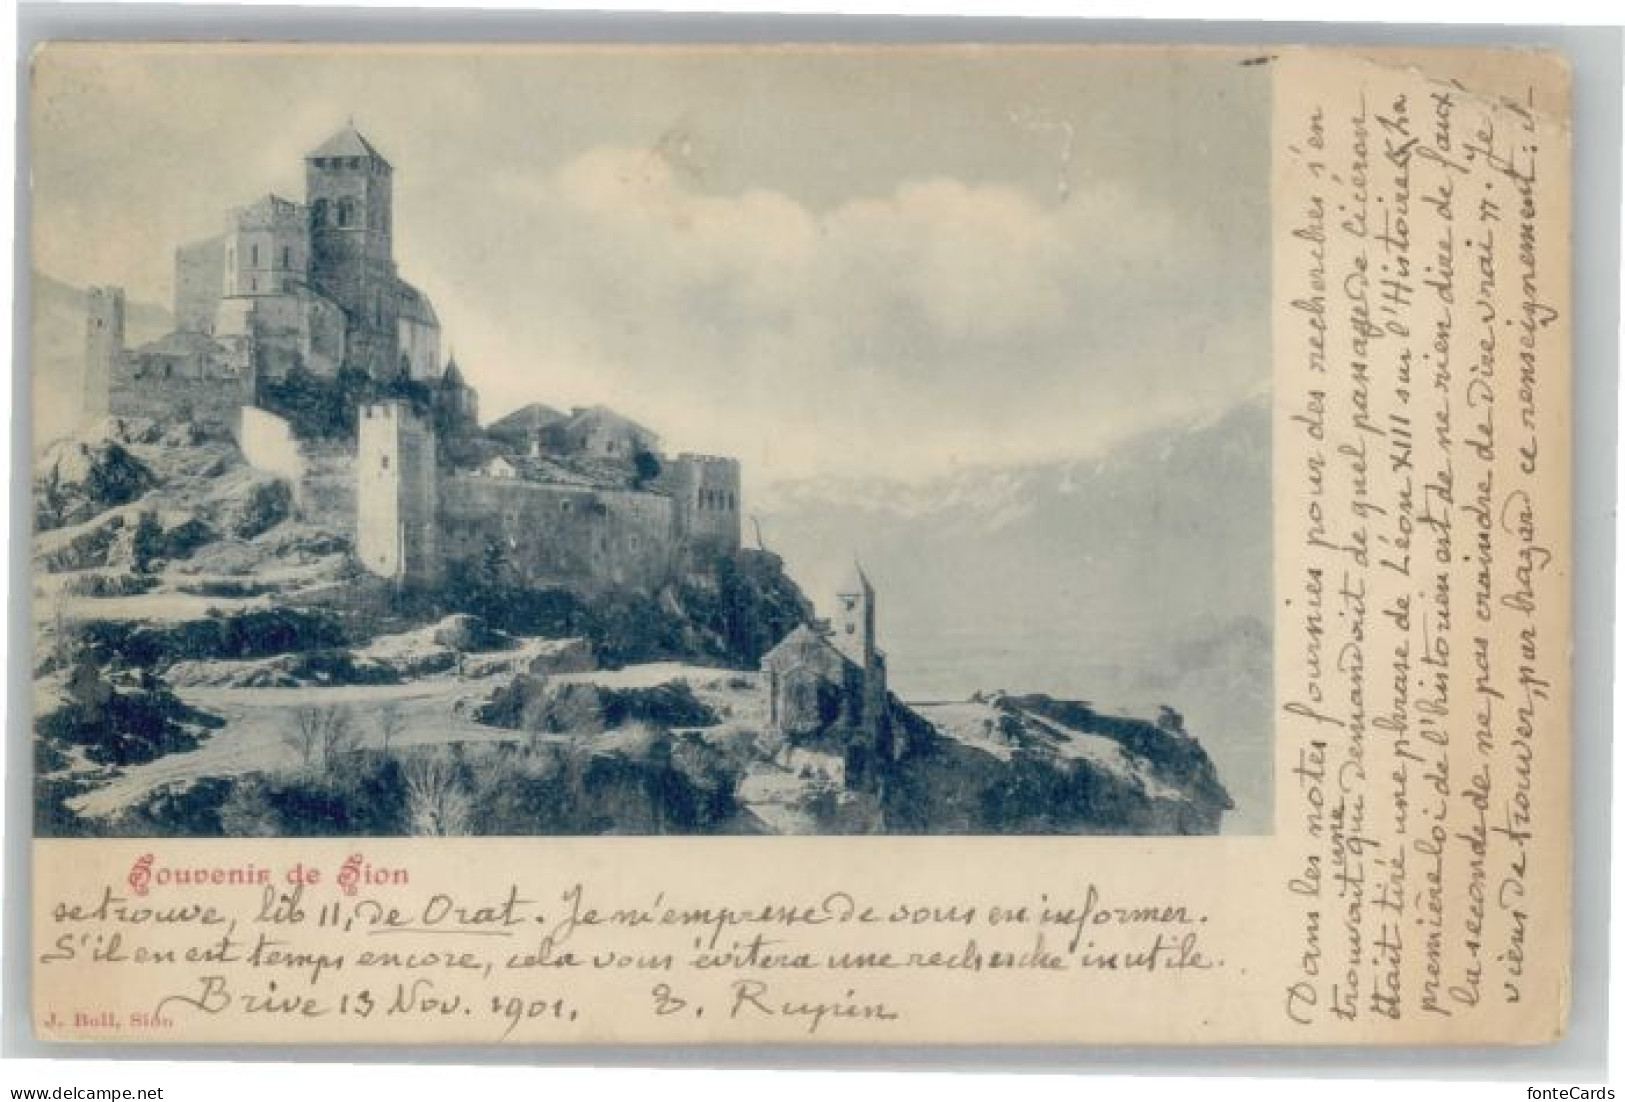 Dans les notes fournies pour des recherches s'en
trouvait une qui demandait de quel passage de Cicéron
était tiré une phrase de Léon XIII sur l'Histoire « La
première loi de l'historien est de ne rien dire de faux,
la seconde de ne pas craindre de dire vrai ». Je
viens de trouver, par hazard ce renseignement : il
Souvenir de Sion
se trouve, lib II, de Orat. Je m'empresse de vous en informer.
S'il en est temps encore, cela vous évitera une recherche inutile.
Brive 13 Nov. 1901. E. Rupin
J. Boll, Sion
fonteCards